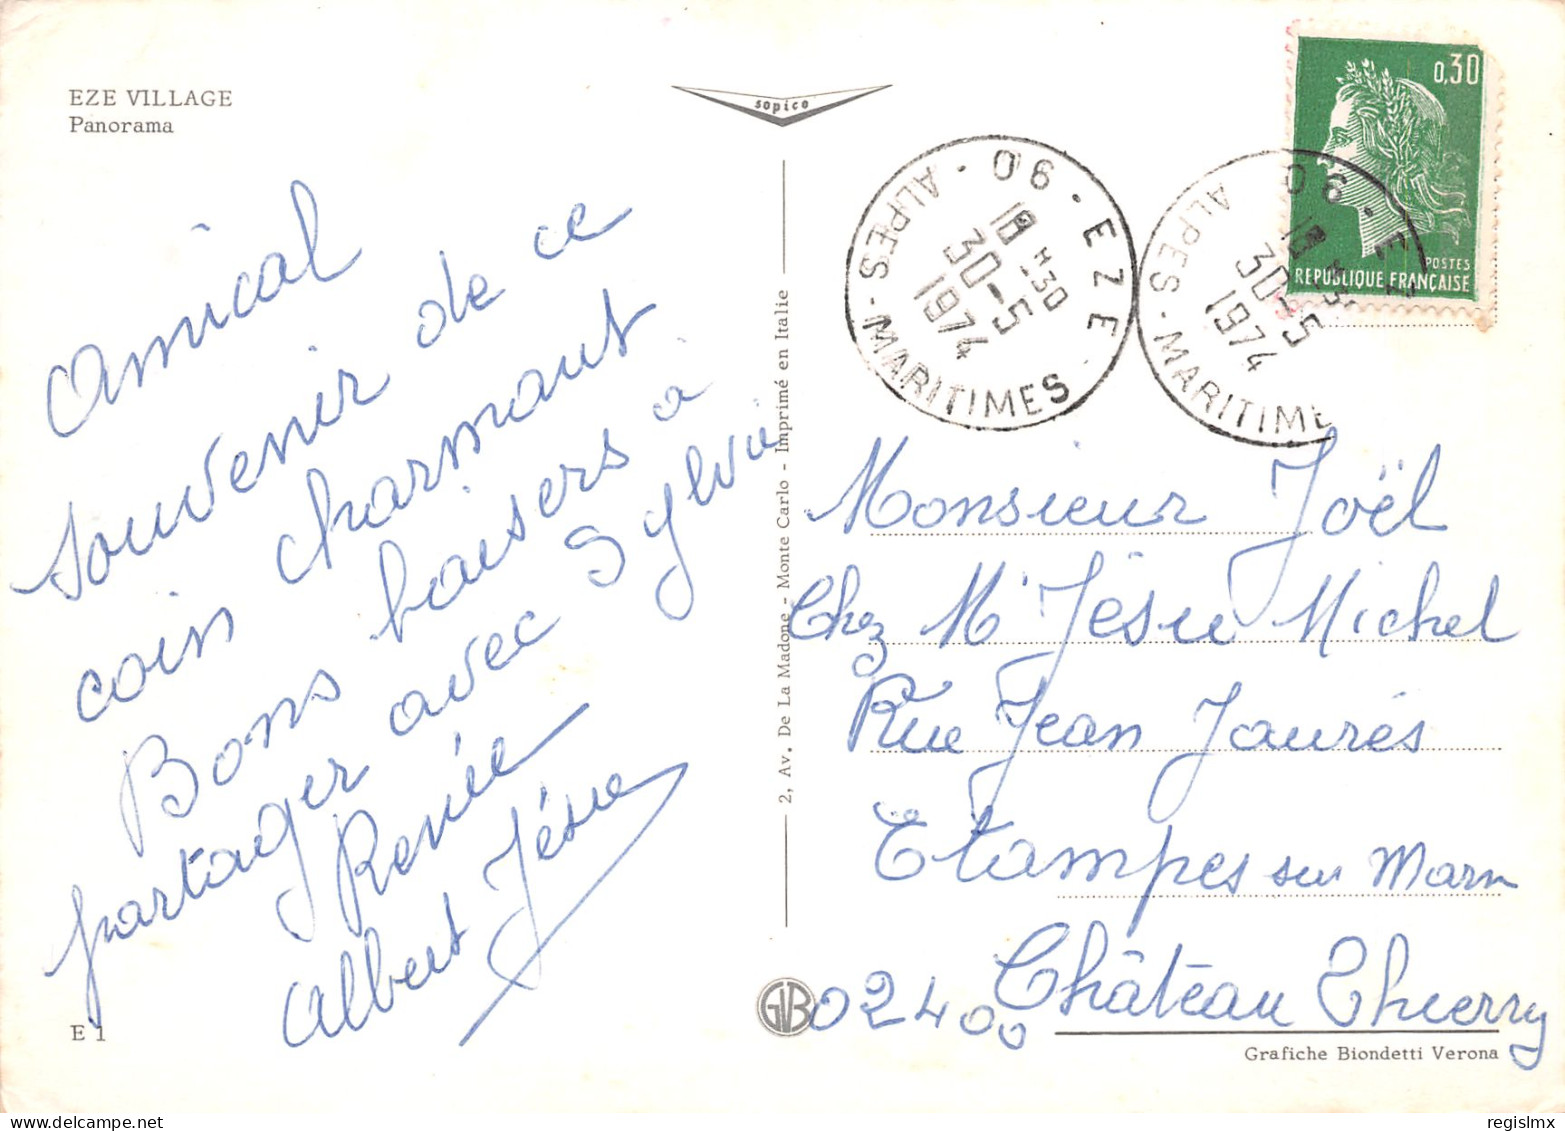 EZE VILLAGE
Panorama
sopico
Amical
souvenir de ce
coin charmant
Bons baisers à
partager avec Sylvie
Renée
Albert Jésu
E 1
2, Av. De La Madone - Monte Carlo - Imprimé en Italie
06 - EZE
ALPES-MARITIMES
18H30
30-5
1974
06 - EZ
ALPES-MARITIME
30-5
1974
0,30
POSTES
REPUBLIQUE FRANÇAISE
Monsieur Joël
Chez Mr Jésu Michel
Rue Jean Jaurés
Etampes sur Marn
02400 Château Thierry
GVB
Grafiche Biondetti Verona
regislmx